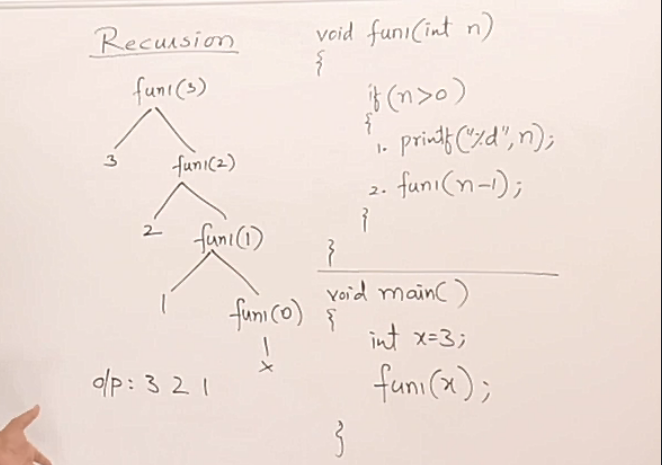 Recursion
fun1(3)
3
fun1(2)
2
fun1(1)
1
fun1(0)
x
o/p: 3 2 1
void fun1(int n)
{
if(n>0)
{
1. printf("%d",n);
2. fun1(n-1);
}
}
void main()
{
int x=3;
fun1(x);
}